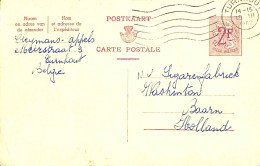 Naam en adres van de afzender
Nom et adresse de l'expéditeur
POSTKAART
CARTE POSTALE
2F
TURNHOUT
14-15
Heymans-Appels
Meirstraat 3
Turnhout
Belge
N.V. Sigarenfabriek
Washington
Baarn
Holland